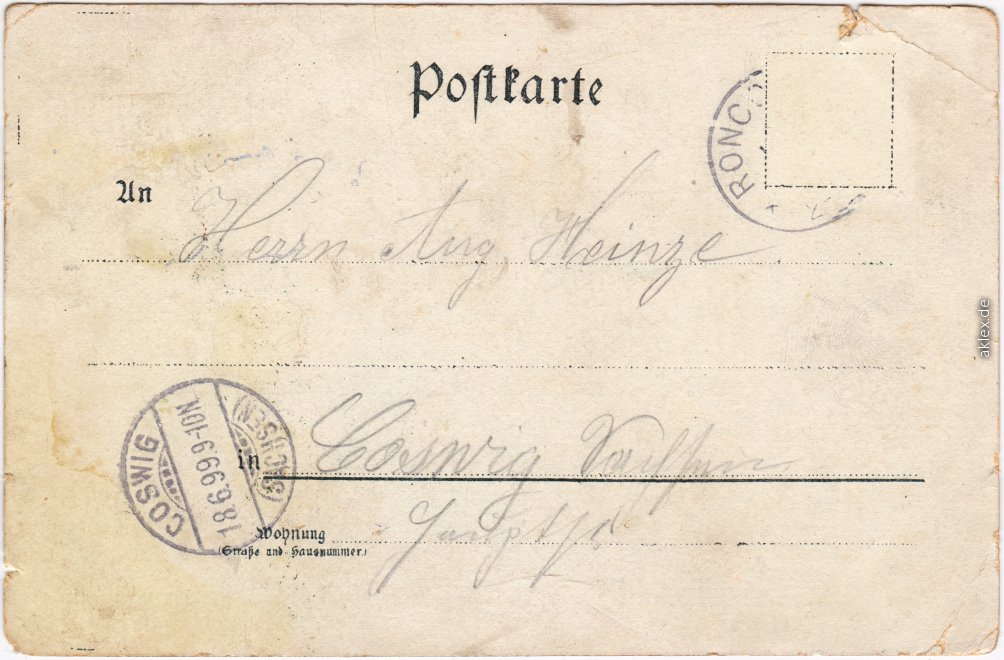 Postkarte
RONCO
An
Herrn Aug. Heinze
COSWIG
18.6.99.9-10N.
(SACHSEN)
in Coswig Sachsen
Wohnung
(Straße und Hausnummer.)
aklex.de